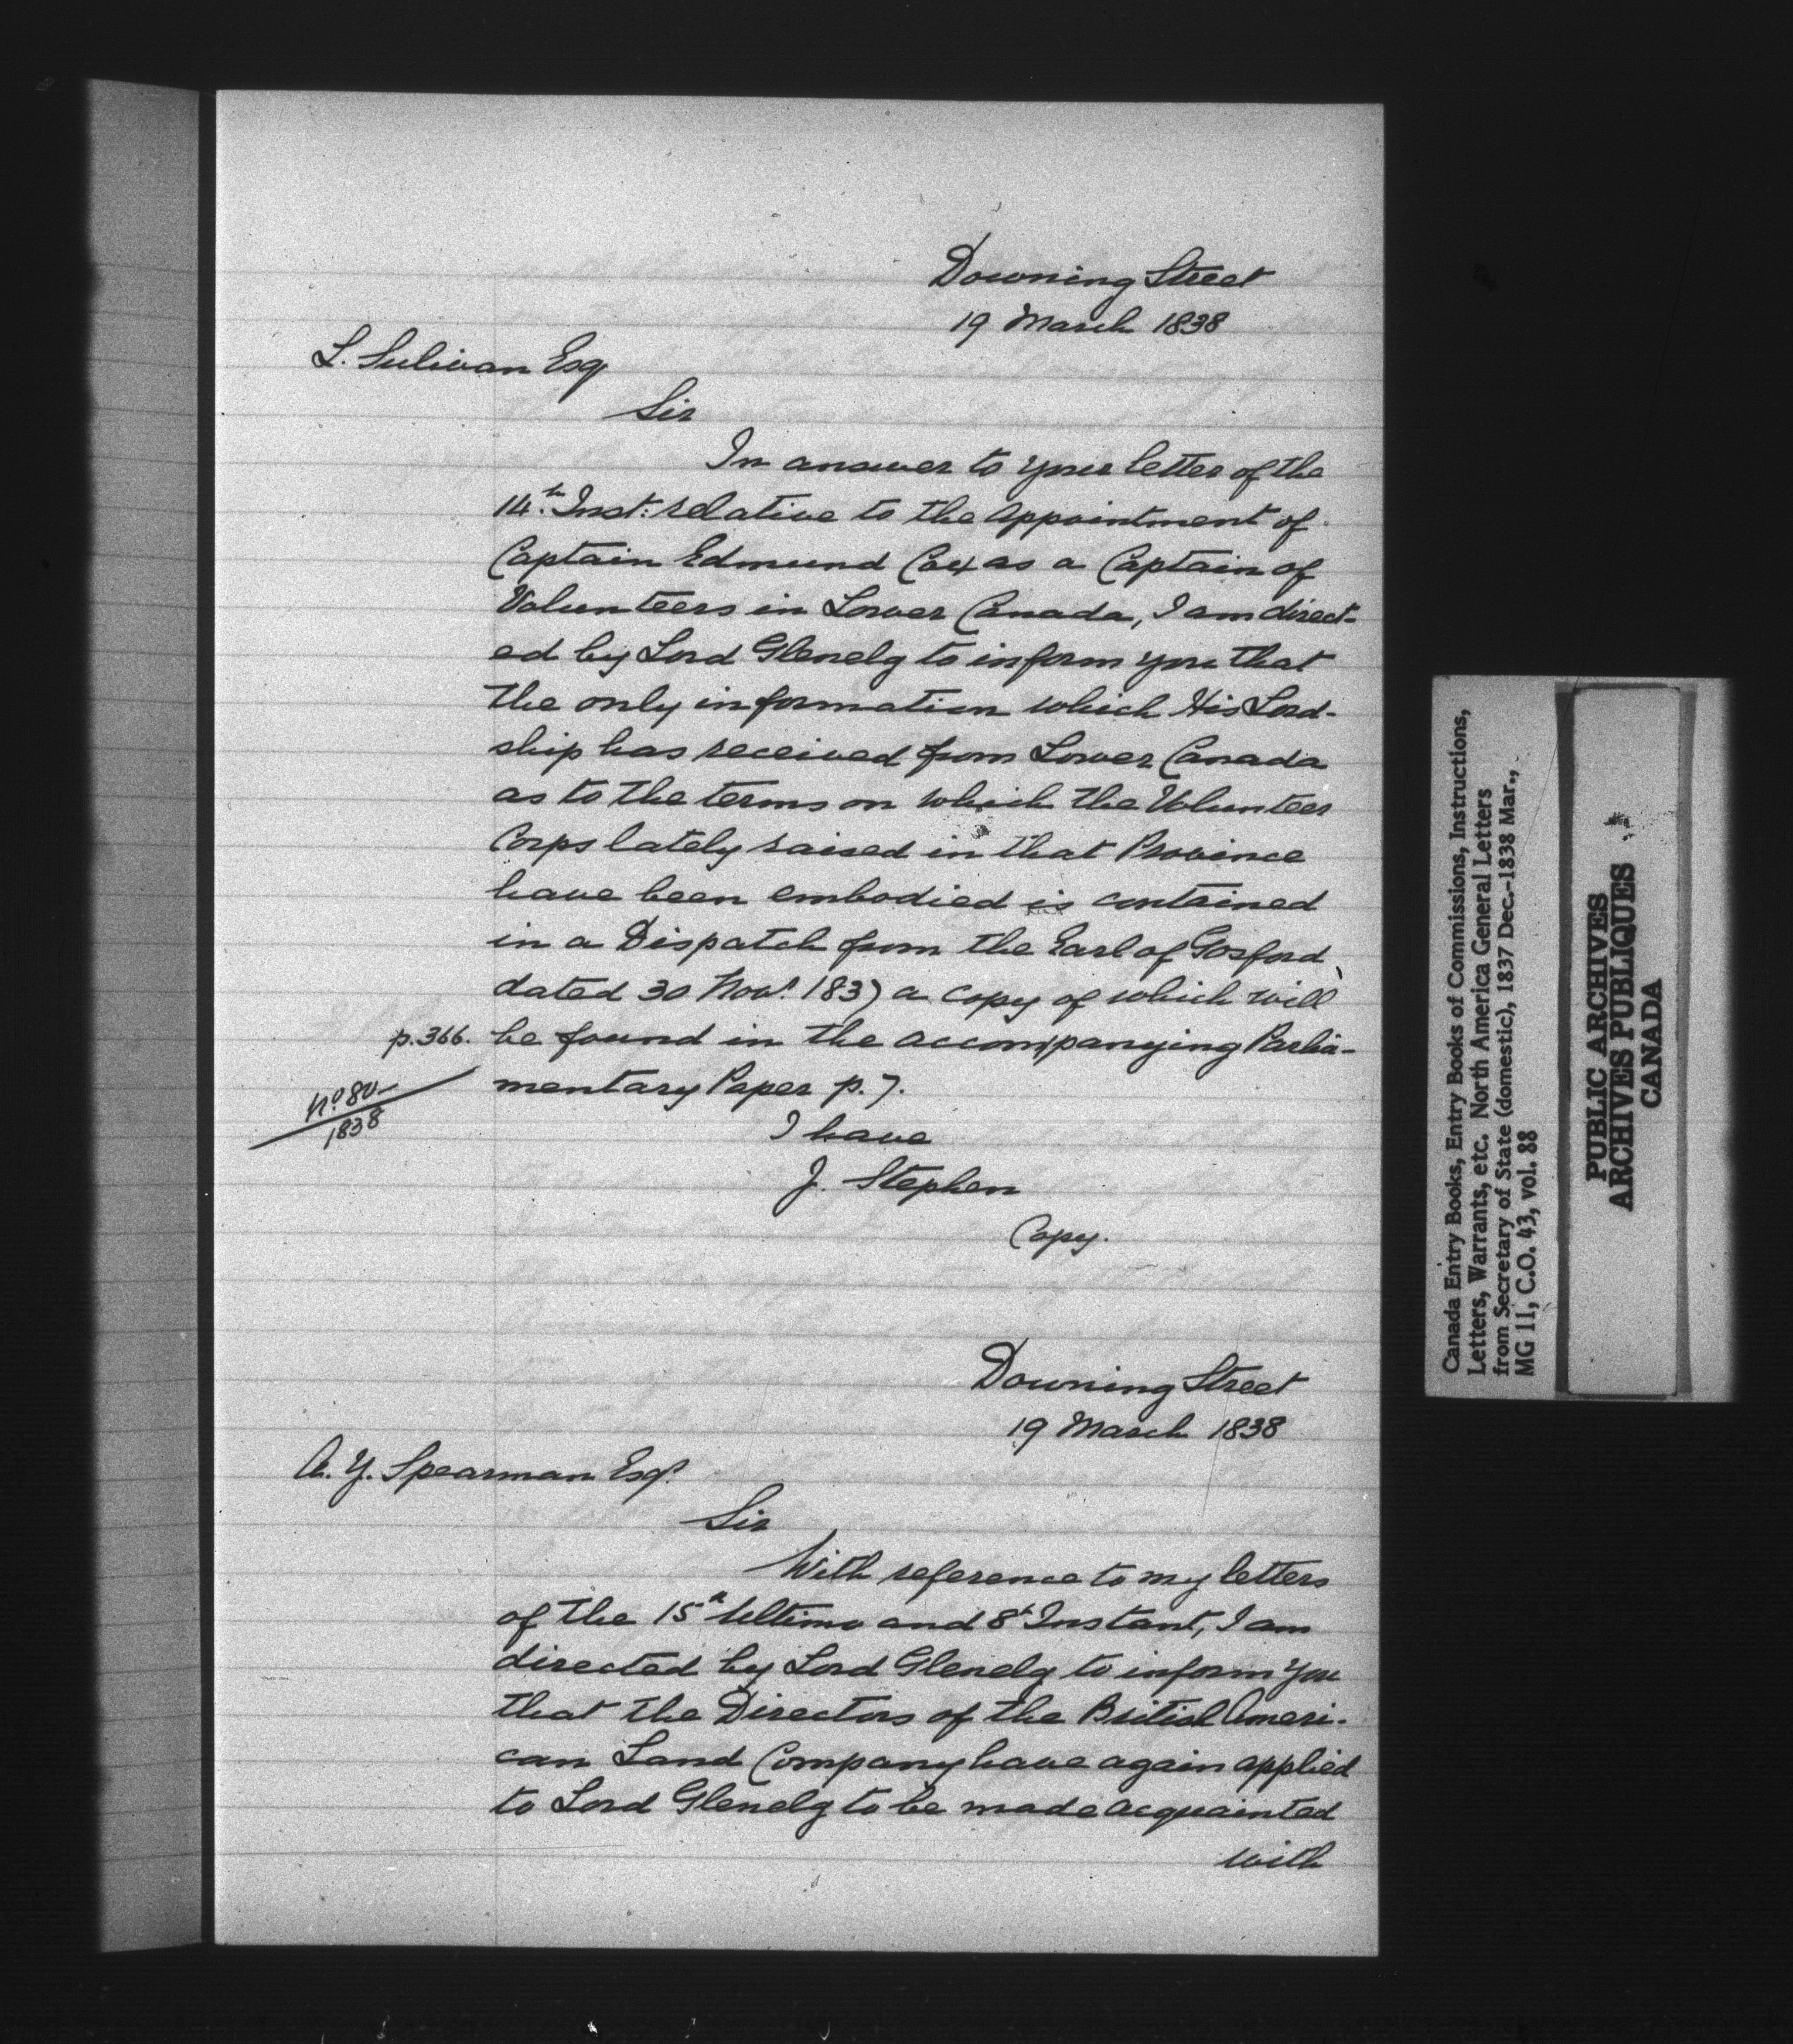 Downing Street
19 March 1838
L. Sulivan Esq
Sir
In answer to your letter of the
14th. Inst: relative to the appointment of
Captain Edmund Cox as a Captain of
Volunteers in Lower Canada, I am direct-
ed by Lord Glenelg to inform you that
the only information which His Lord-
ship has received from Lower Canada
as to the terms on which the Volunteer
Corps lately raised in that Province
have been embodied is contained
in a Dispatch from the Earl of Gosford,
dated 30 Novr. 1837 a copy of which will
p. 366. be found in the accompanying Parlia-
mentary Paper p. 7.
No. 80
1838
I have
J. Stephen
Copy.
Downing Street
19 March 1838
A. Y. Spearman Esqr.
Sir
With reference to my letters
of the 15th Ultimo and 8th Instant, I am
directed by Lord Glenelg to inform you
that the Directors of the British Ameri-
can Land Company have again applied
to Lord Glenelg to be made acquainted
with
Canada Entry Books, Entry Books of Commissions, Instructions,
Letters, Warrants, etc. North America General Letters
from Secretary of State (domestic), 1837 Dec.-1838 Mar.,
MG 11, C.O. 43, vol. 88
PUBLIC ARCHIVES
ARCHIVES PUBLIQUES
CANADA